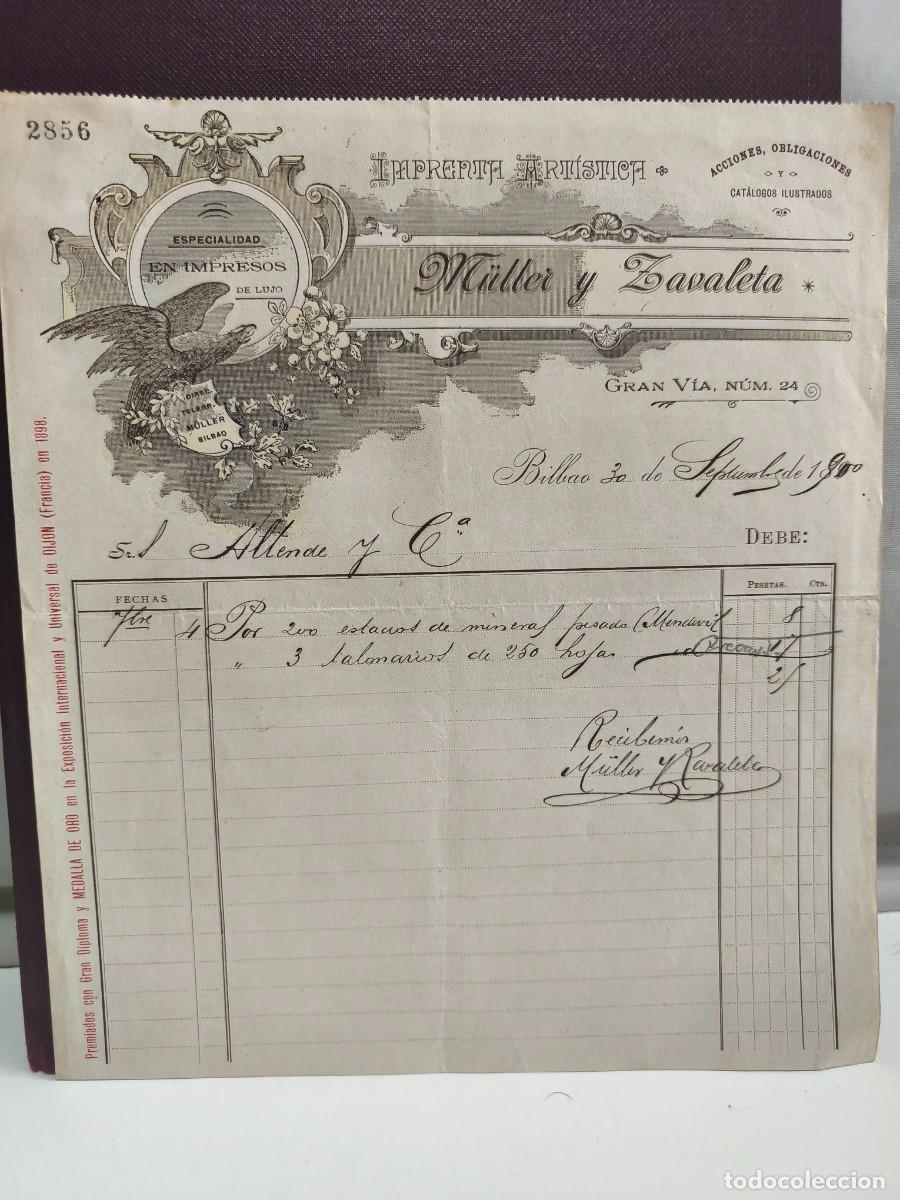 2856
IMPRENTA ARTÍSTICA
ACCIONES, OBLIGACIONES
Y
CATÁLOGOS ILUSTRADOS
ESPECIALIDAD
EN IMPRESOS
DE LUJO
Müller y Zavaleta
GRAN VÍA, NÚM. 24
TELEGR.
MÜLLER
BILBAO
Bilbao 30 de Septiembre de 1900
Sr. Allende y Cª
DEBE:
FECHAS
PESETAS. CTS.
7bre 4 Por 200 estados de mineral pesado 8
" 3 talonarios de 250 hojas 17
25
Recibimos
Müller y Zavaleta
Premiados con Gran Diploma y MEDALLA DE ORO en la Exposición Internacional y Universal de DIJON (Francia) en 1898.
todocoleccion